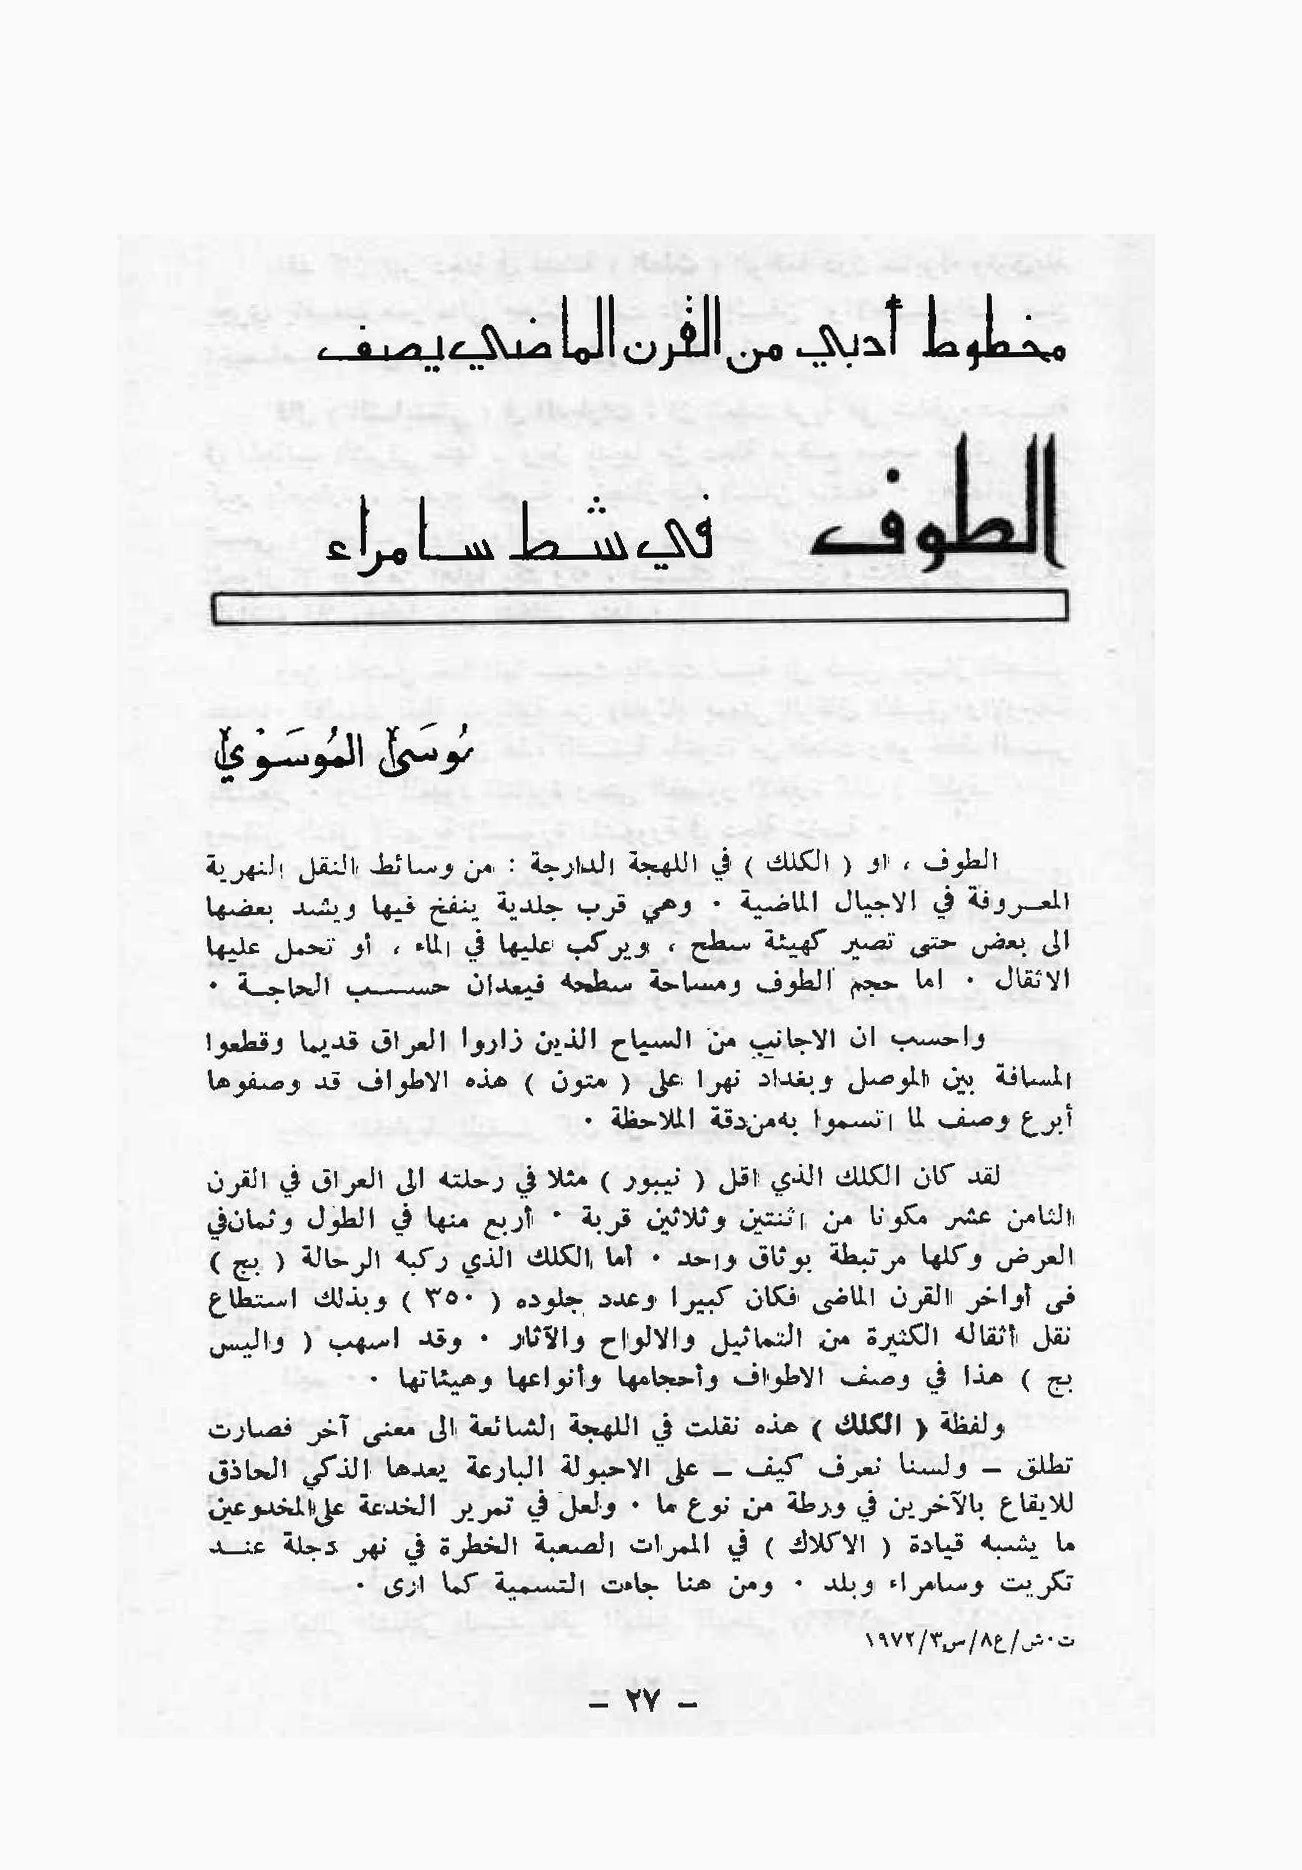 مخطوط أدبي من القرن الماضي يصف
الطوف في شط سامراء
موسى الموسوي
الطوف ، او ( الكلك ) في اللهجة الدارجة : من وسائط النقل النهرية
المعـروفة في الاجيال الماضية ٠ وهي قرب جلدية ينفخ فيها ويشد بعضها
الى بعض حتى تصير كهيئة سطح ، ويركب عليها في الماء ، أو تحمل عليها
الاثقال ٠ اما حجم الطوف ومساحة سطحه فيعدان حســـب الحاجـة ٠
واحسب ان الاجانب من السياح الذين زاروا العراق قديما وقطعوا
المسافة بين الموصل وبغداد نهرا على ( متون ) هذه الاطواف قد وصفوها
أبرع وصف لما اتسموا به من دقة الملاحظة ٠
لقد كان الكلك الذي اقل ( نيبور ) مثلا في رحلته الى العراق في القرن
الثامن عشر مكونا من اثنتين وثلاثين قربة ٠ أربع منها في الطول وثمان في
العرض وكلها مرتبطة بوثاق واحد ٠ أما الكلك الذي ركبه الرحالة ( بج )
فى أواخر القرن الماضى فكان كبيرا وعدد جلوده ( ٣٥٠ ) وبذلك استطاع
نقل أثقاله الكثيرة من التماثيل والالواح والآثار ٠ وقد اسهب ( واليس
بج ) هذا في وصف الاطواف وأحجامها وأنواعها وهيئاتها ٠
ولفظة ( الكلك ) هذه نقلت في اللهجة الشائعة الى معنى آخر فصارت
تطلق – ولسنا نعرف كيف – على الاحبولة البارعة يعدها الذكي الحاذق
للايقاع بالآخرين في ورطة من نوع ما ٠ ولعل في تمرير الخدعة على المخدوعين
ما يشبه قيادة ( الاكلاك ) في الممرات الصعبة الخطرة في نهر دجلة عنـد
تكريت وسامراء وبلد ٠ ومن هنا جاءت التسمية كما ارى ٠
ت٠ش/ع٨/س٣/١٩٧٢
– ٢٧ –